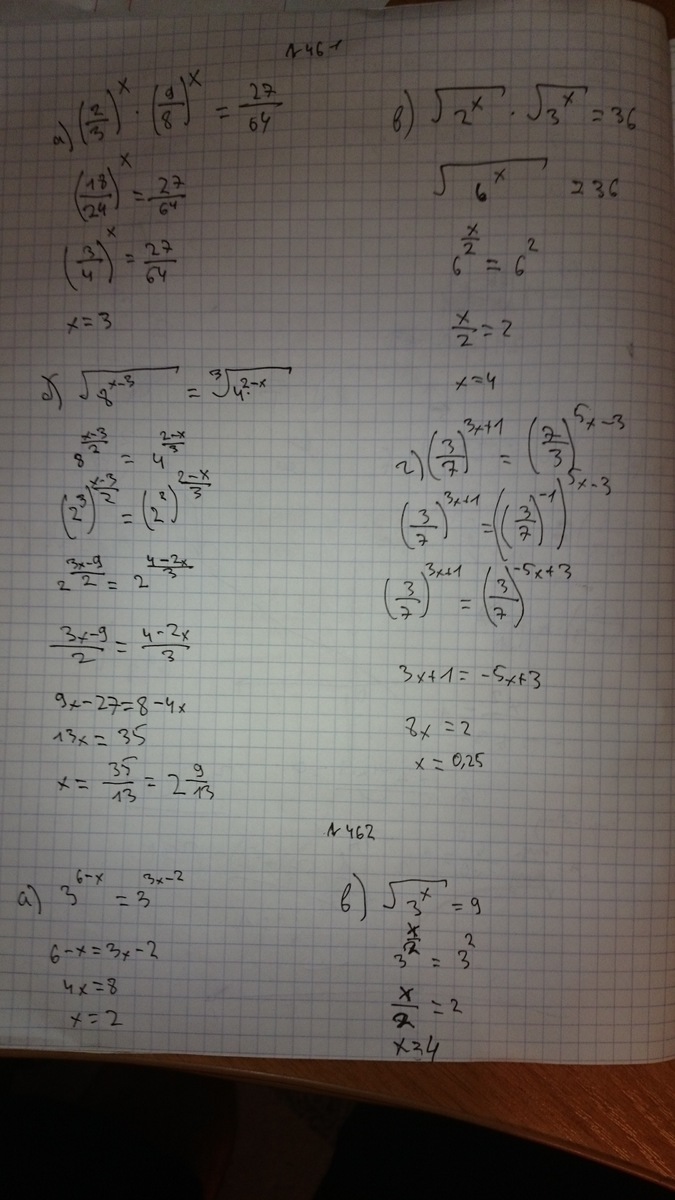 №461
а) (2/3)^x · (9/8)^x = 27/64
(18/24)^x = 27/64
(3/4)^x = 27/64
x=3
б) √(8^(x-3)) = ∛(4^(2-x))
8^((x-3)/2) = 4^((2-x)/3)
(2^3)^((x-3)/2) = (2^2)^((2-x)/3)
2^((3x-9)/2) = 2^((4-2x)/3)
(3x-9)/2 = (4-2x)/3
9x-27=8-4x
13x=35
x= 35/13 = 2 9/13
в) √(2^x) · √(3^x) = 36
√(6^x) = 36
6^(x/2) = 6^2
x/2 = 2
x=4
г) (3/7)^(3x+1) = (7/3)^(5x-3)
(3/7)^(3x+1) = ((3/7)^(-1))^(5x-3)
(3/7)^(3x+1) = (3/7)^(-5x+3)
3x+1=-5x+3
8x=2
x=0,25
№462
а) 3^(6-x) = 3^(3x-2)
6-x=3x-2
4x=8
x=2
в) √(3^x) = 9
3^(x/2) = 3^2
x/2 = 2
x=4